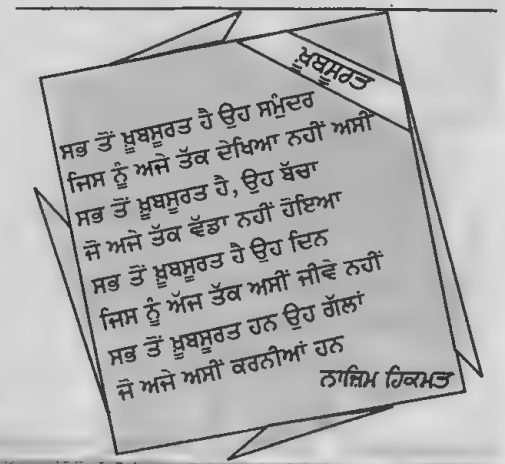 ਖ਼ੂਬਸੂਰਤ
ਸਭ ਤੋਂ ਖ਼ੂਬਸੂਰਤ ਹੈ ਉਹ ਸਮੁੰਦਰ
ਜਿਸ ਨੂੰ ਅਜੇ ਤੱਕ ਦੇਖਿਆ ਨਹੀਂ ਅਸੀਂ
ਸਭ ਤੋਂ ਖ਼ੂਬਸੂਰਤ ਹੈ, ਉਹ ਬੱਚਾ
ਜੋ ਅਜੇ ਤੱਕ ਵੱਡਾ ਨਹੀਂ ਹੋਇਆ
ਸਭ ਤੋਂ ਖ਼ੂਬਸੂਰਤ ਹੈ ਉਹ ਦਿਨ
ਜਿਸ ਨੂੰ ਅੱਜ ਤੱਕ ਅਸੀਂ ਜੀਵੇ ਨਹੀਂ
ਸਭ ਤੋਂ ਖ਼ੂਬਸੂਰਤ ਹਨ ਉਹ ਗੱਲਾਂ
ਜੋ ਅਜੇ ਅਸੀਂ ਕਰਨੀਆਂ ਹਨ
ਨਾਜ਼ਿਮ ਹਿਕਮਤ